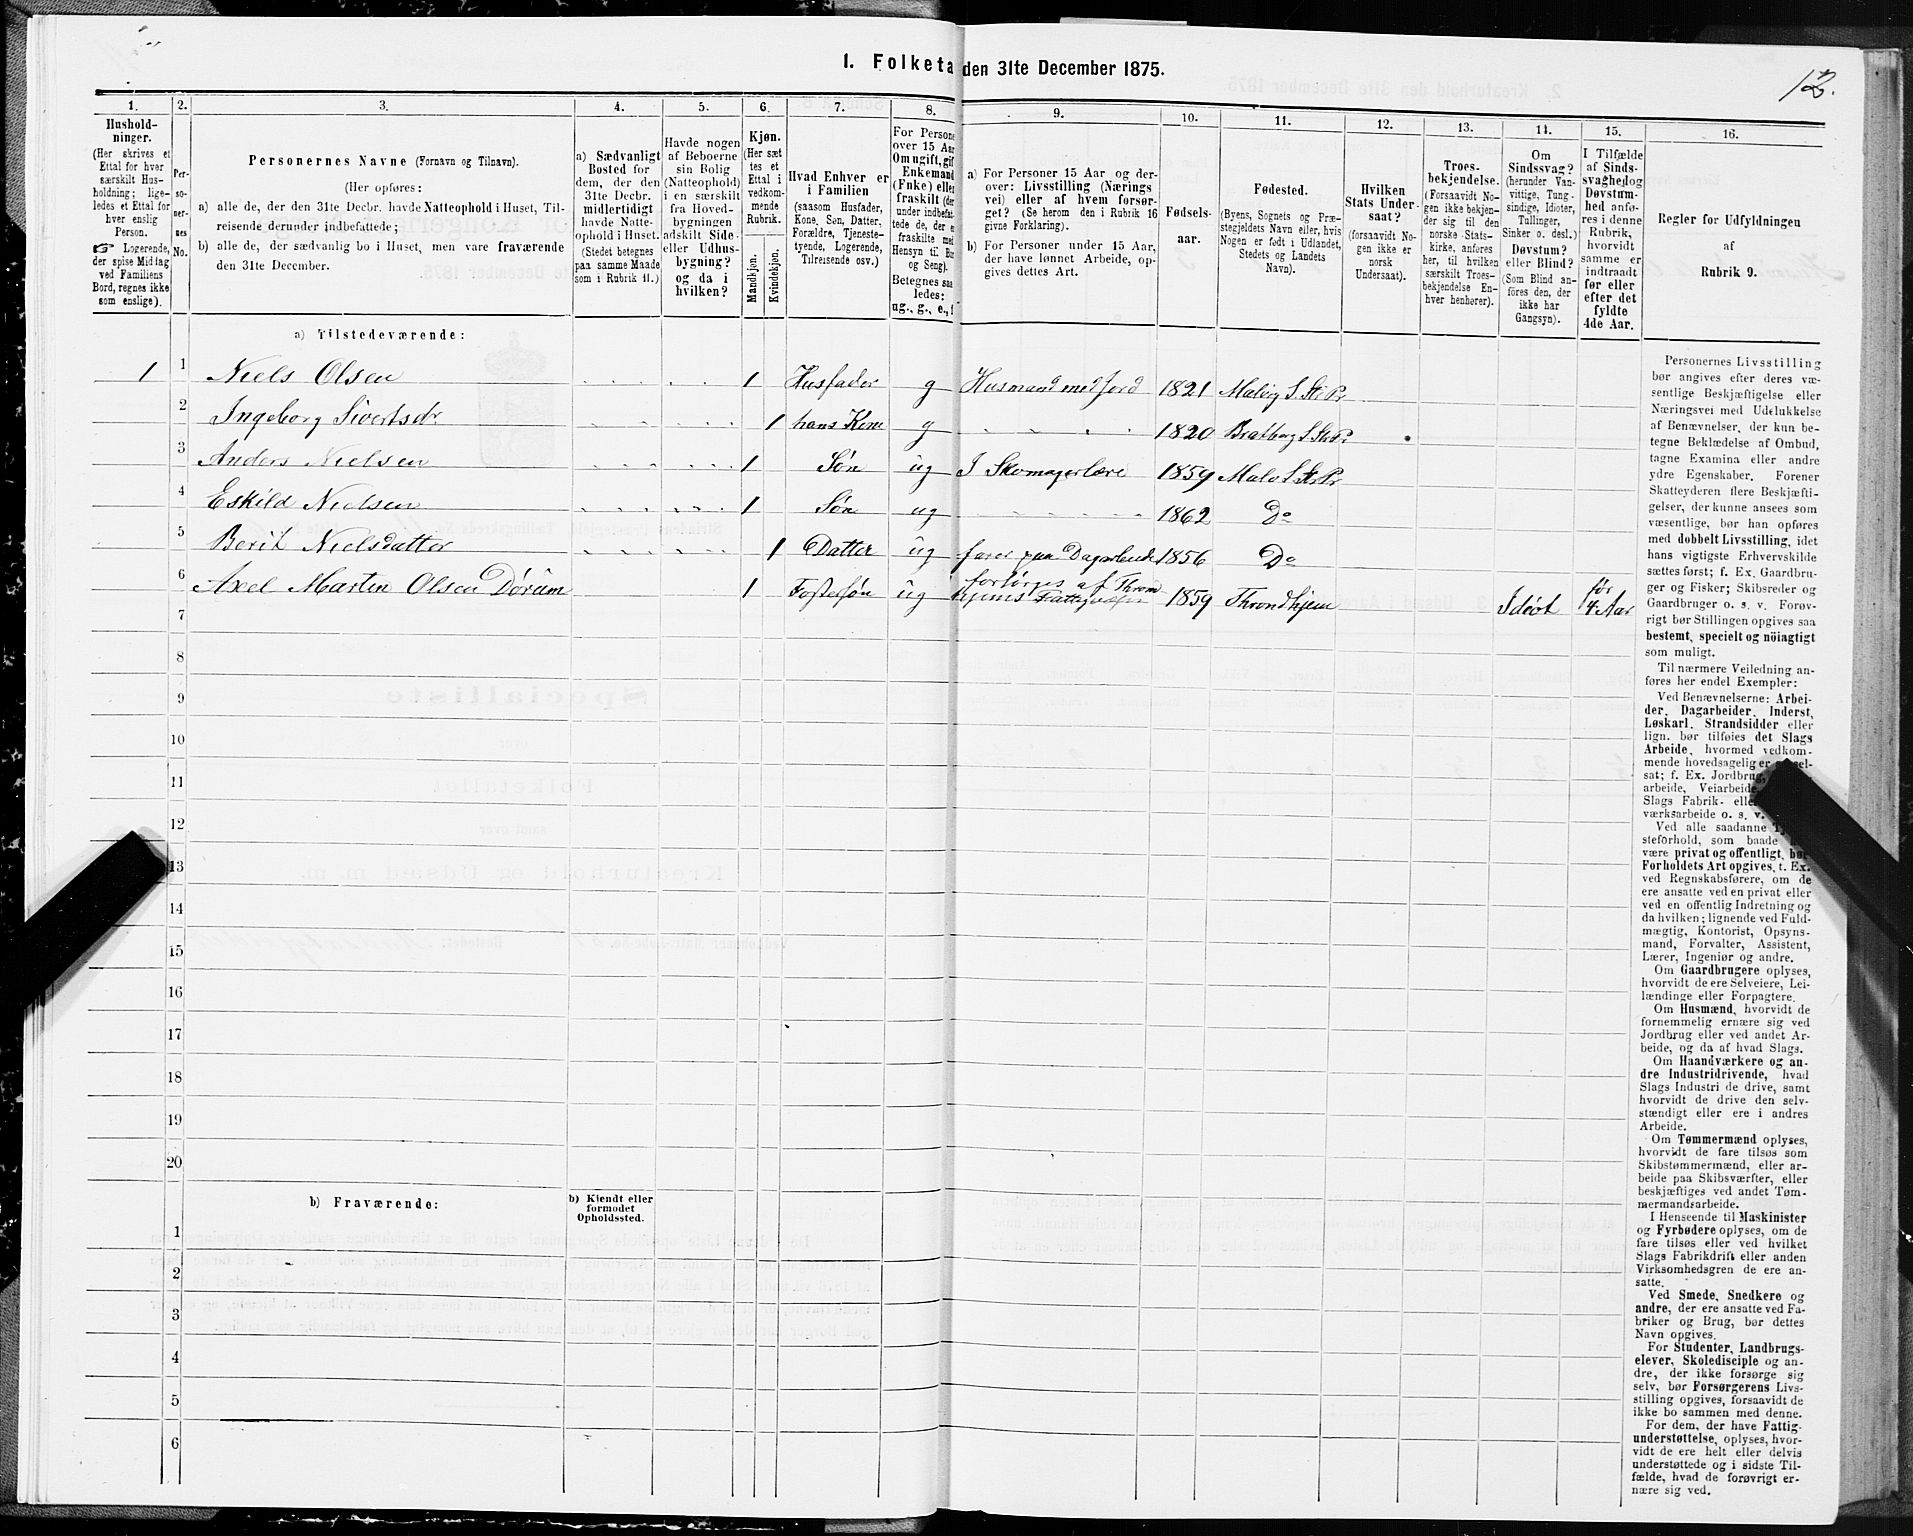 1. Folketa den 31te December 1875.
12.
1. 2. 3. 4. 5. 6. 7. 8. 9. 10. 11. 12. 13. 14. 15. 16.
Hushold-
ninger.
(Her skrives et
Ettal for hver
særskilt Hus-
holdning; lige-
ledes et Ettal for
hver enslig
Person.
☞ Logerende,
der spise Middag
ved Familiens
Bord, regnes ikke
som enslige).
Per-
so-
ner-
nes
No.
Personernes Navne (Fornavn og Tilnavn).
(Her opføres:
a) alle de, der den 31te Decbr. havde Natteophold i Huset, Til-
reisende derunder indbefattede;
b) alle de, der sædvanlig bo i Huset, men vare fraværende
den 31te December.
a) Sædvanligt
Bosted for
dem, der den
31te Decbr.
midlertidigt
havde Natte-
ophold i Huset.
(Stedet betegnes
paa samme Maade
som i Rubrik 11.)
Havde nogen
af Beboerne
sin Bolig
(Natteophold)
i en særskilt
fra Hoved-
bygningen
adskilt Side-
eller Udhus-
bygning?
og da i
hvilken?
Kjøn.
(Her sæt
tes et
Ettal i
vedkom-
mende
Rubrik.
Mandkjøn.
Kvindekjøn.
Hvad Enhver er
i Familien
(saasom Husfader,
Kone, Søn, Datter,
Forældre, Tjeneste-
tyende, Logerende,
Tilreisende osv.)
For Persone
over 15 Aar
Om ugift, gif
Enkemand
(Enke) elle
fraskilt (der
under indbefat-
tede de, der e
fraskilte med
Hensyn til Bo
og Seng).
Betegnes saa
ledes:
ug., g., e., f
a) For Personer 15 Aar og der-
over: Livsstilling (Nærings
vei) eller af hvem forsør-
get? (Se herom den i Rubrik 16
givne Forklaring).
b) For Personer under 15 Aar,
der have lønnet Arbeide, op-
gives dettes Art.
Fødsels-
aar.
Fødested.
(Byens, Sognets og Præ-
stegjeldets Navn eller, hvis
Nogen er født i Udlandet,
Stedets og Landets
Navn).
Hvilken
Stats Under-
saat?
(forsaavidt No-
gen ikke er
norsk
Undersaat).
Troes-
bekjendelse.
(Forsaavidt No-
gen ikke bekjen-
der sig til den
norske Stats-
kirke, anføres
her, til hvilken
særskilt Troes-
bekjendelse En-
hver henhører).
Om
Sindssvag?
(herunder Van-
vittige, Tung-
sindige, Idioter,
Tullinger,
Sinker o. desl.)
Døvstum?
eller Blind?
(Som Blind an-
føres den, der
ikke har
Gangsyn).
I Tilfælde
af Sinds-
svaghed og
Døvstum-
hed anfø-
res i denne
Rubrik,
hvorvidt
samme er
indtraadt
før eller
efter det
fyldte
4de Aar.
Regler for Udfyldningen
af
Rubrik 9.
a) Tilstedeværende:
1 1 Niels Olsen 1 Husfader g Husmand med Jord 1821 Malvig S. Str Pr
2 Ingeborg Sivertsdr. 1 hans Kone g 1820 Bratberg S. Str Pr.
3 Anders Nielsen 1 Søn ug I Skomagerlære 1859 Malv S. Str Pr
4 Eskild Nielsen 1 Søn ug 1862 Do
5 Berit Nielsdatter 1 Datter ug farer paa Dagarbeide 1856 Do
6 Axel Martin Olsen Dørum 1 Fostersøn ug forsørges af Thrond
hjems Fattigvæsen 1859 Throndhjem Idiot før
4 Aar
7
8
9
10
11
12
13
14
15
16
17
18
19
20
b) Fraværende:
b) Kjendt eller
formodet
Opholdssted.
1
2
3
4
5
6
Personernes Livsstilling
bør angives efter deres væ-
sentlige Beskjæftigelse eller
Næringsvei med Udelukkelse
af Benævnelser, der kun be-
tegne Beklædelse af Ombud,
tagne Examina eller andre
ydre Egenskaber. Forener
Skatteyderen flere Beskjæfti-
gelser, der kunne ansees som
væsentlige, bør han opføres
med dobbelt Livsstilling, idet
hans vigtigste Erhvervskilde
sættes først; f. Ex. Gaardbru-
ger og Fisker; Skibsreder og
Gaardbruger o. s. v. Forøv-
rigt bør Stillingen opgives saa
bestemt, specielt og nöiagtigt
som muligt.
Til nærmere Veiledning an-
føres her endel Exempler:
Ved Benævnelserne: Arbei-
der, Dagarbeider, Inderst,
Løskarl, Strandsidder eller
lign. bør tilføies det Slags
Arbeide, hvormed vedkom-
mende hovedsagelig er sel-
sat; f. Ex. Jordbrug,
arbeide, Veiarbeide,
Slags Fabrik- elle
værksarbeide o. s. v.
Ved alle saadanne
steforhold, som baade
være privat og offentligt, bør
Forholdets Art opgives, t. Ex.
ved Regnskabsførere, om de
ere ansatte ved en privat eller
ved en offentlig Indretning og
da hvilken; lignende ved Fuld-
mægtig, Kontorist, Opsyns-
mand, Forvalter, Assistent,
Lærer, Ingeniør og andre.
Om Gaardbrugere oplyses,
hvorvidt de ere Selveiere, Lei-
lændinge eller Forpagtere.
Om Husmænd, hvorvidt de
fornemmelig ernære sig ved
Jordbrug eller ved andet Ar-
beide, og da af hvad Slags.
Om Haandværkere og an-
dre Industridrivende, hvad
Slags Industri de drive, samt
hvorvidt de drive den selv-
stændigt eller ere i andres
Arbeide.
Om Tømmermænd oplyses,
hvorvidt de fare tilsøs som
Skibstømmermænd, eller ar-
beide paa Skibsværfter, eller
beskjæftiges ved andet Tøm-
mermandsarbeide.
I Henseende til Maskinister
og Fyrbødere oplyses, om de
fare tilsøs eller ved hvilket
Slags Fabrikdrift eller anden
Virksomhedsgren de ere an-
satte.
Ved Smede, Snedkere og
andre, der ere ansatte ved Fa-
briker og Brug, bør dettes
Navn opgives.
For Studenter, Landbrugs-
elever, Skoledisciple og an-
dre, der ikke forsørge sig
selv, bør Forsørgerens Livs-
stilling opgives, forsaavidt de
ikke bo sammen med denne.
For dem, der have Fattig-
understøttelse, oplyses, hvor-
vidt de ere helt eller delvis
understøttede og i sidste Til-
fælde, hvad de forøvrigt er-
nære sig ved.